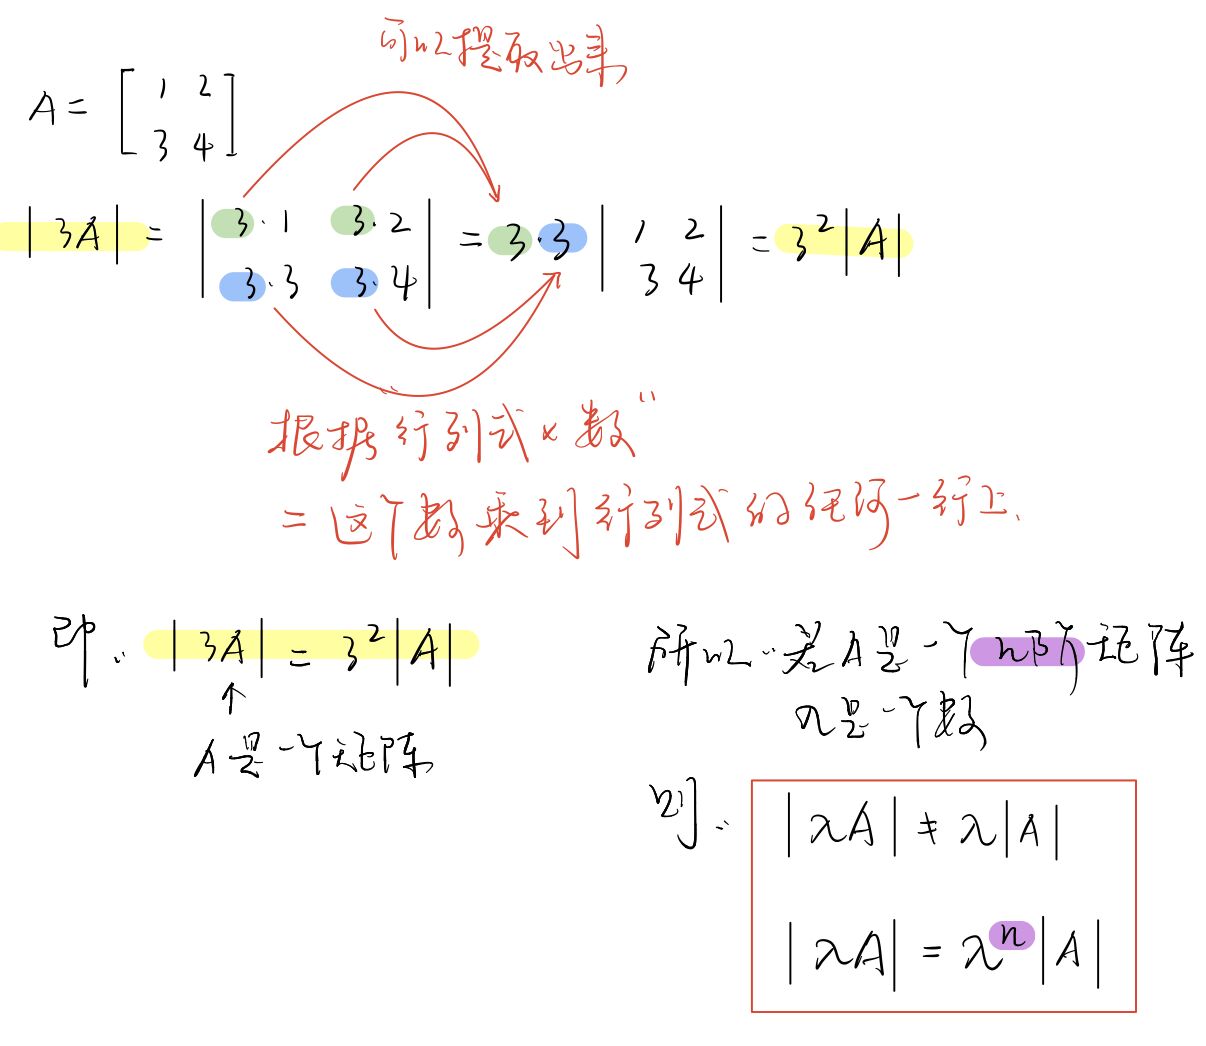 可以提取出来
A = [ 1 2
3 4 ]
|3A| = | 3·1 3·2
3·3 3·4 | = 3·3 | 1 2
3 4 | = 3²|A|
根据“行列式×数”
= 这个数乘到行列式的任何一行上.
即: |3A| = 3²|A|
↑
A是一个矩阵
所以: 若A是一个n阶矩阵
λ是一个数
则:
|λA| ≠ λ|A|
|λA| = λⁿ|A|